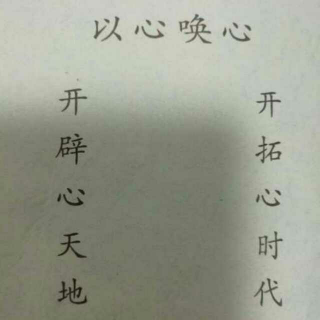 以心唤心
开拓心时代
开辟心天地